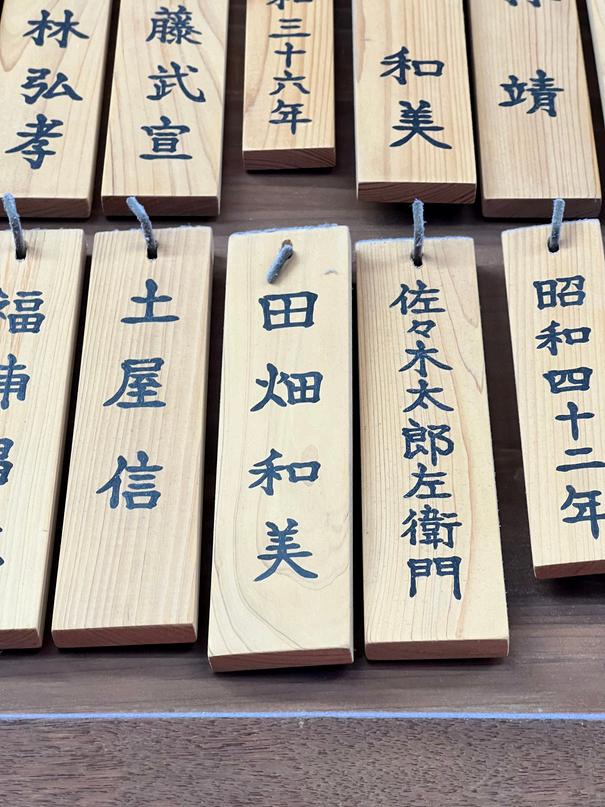 靖
和美
和三十六年
藤武宣
林弘孝
昭和四十二年
佐々木太郎左衛門
田畑和美
土屋信
福